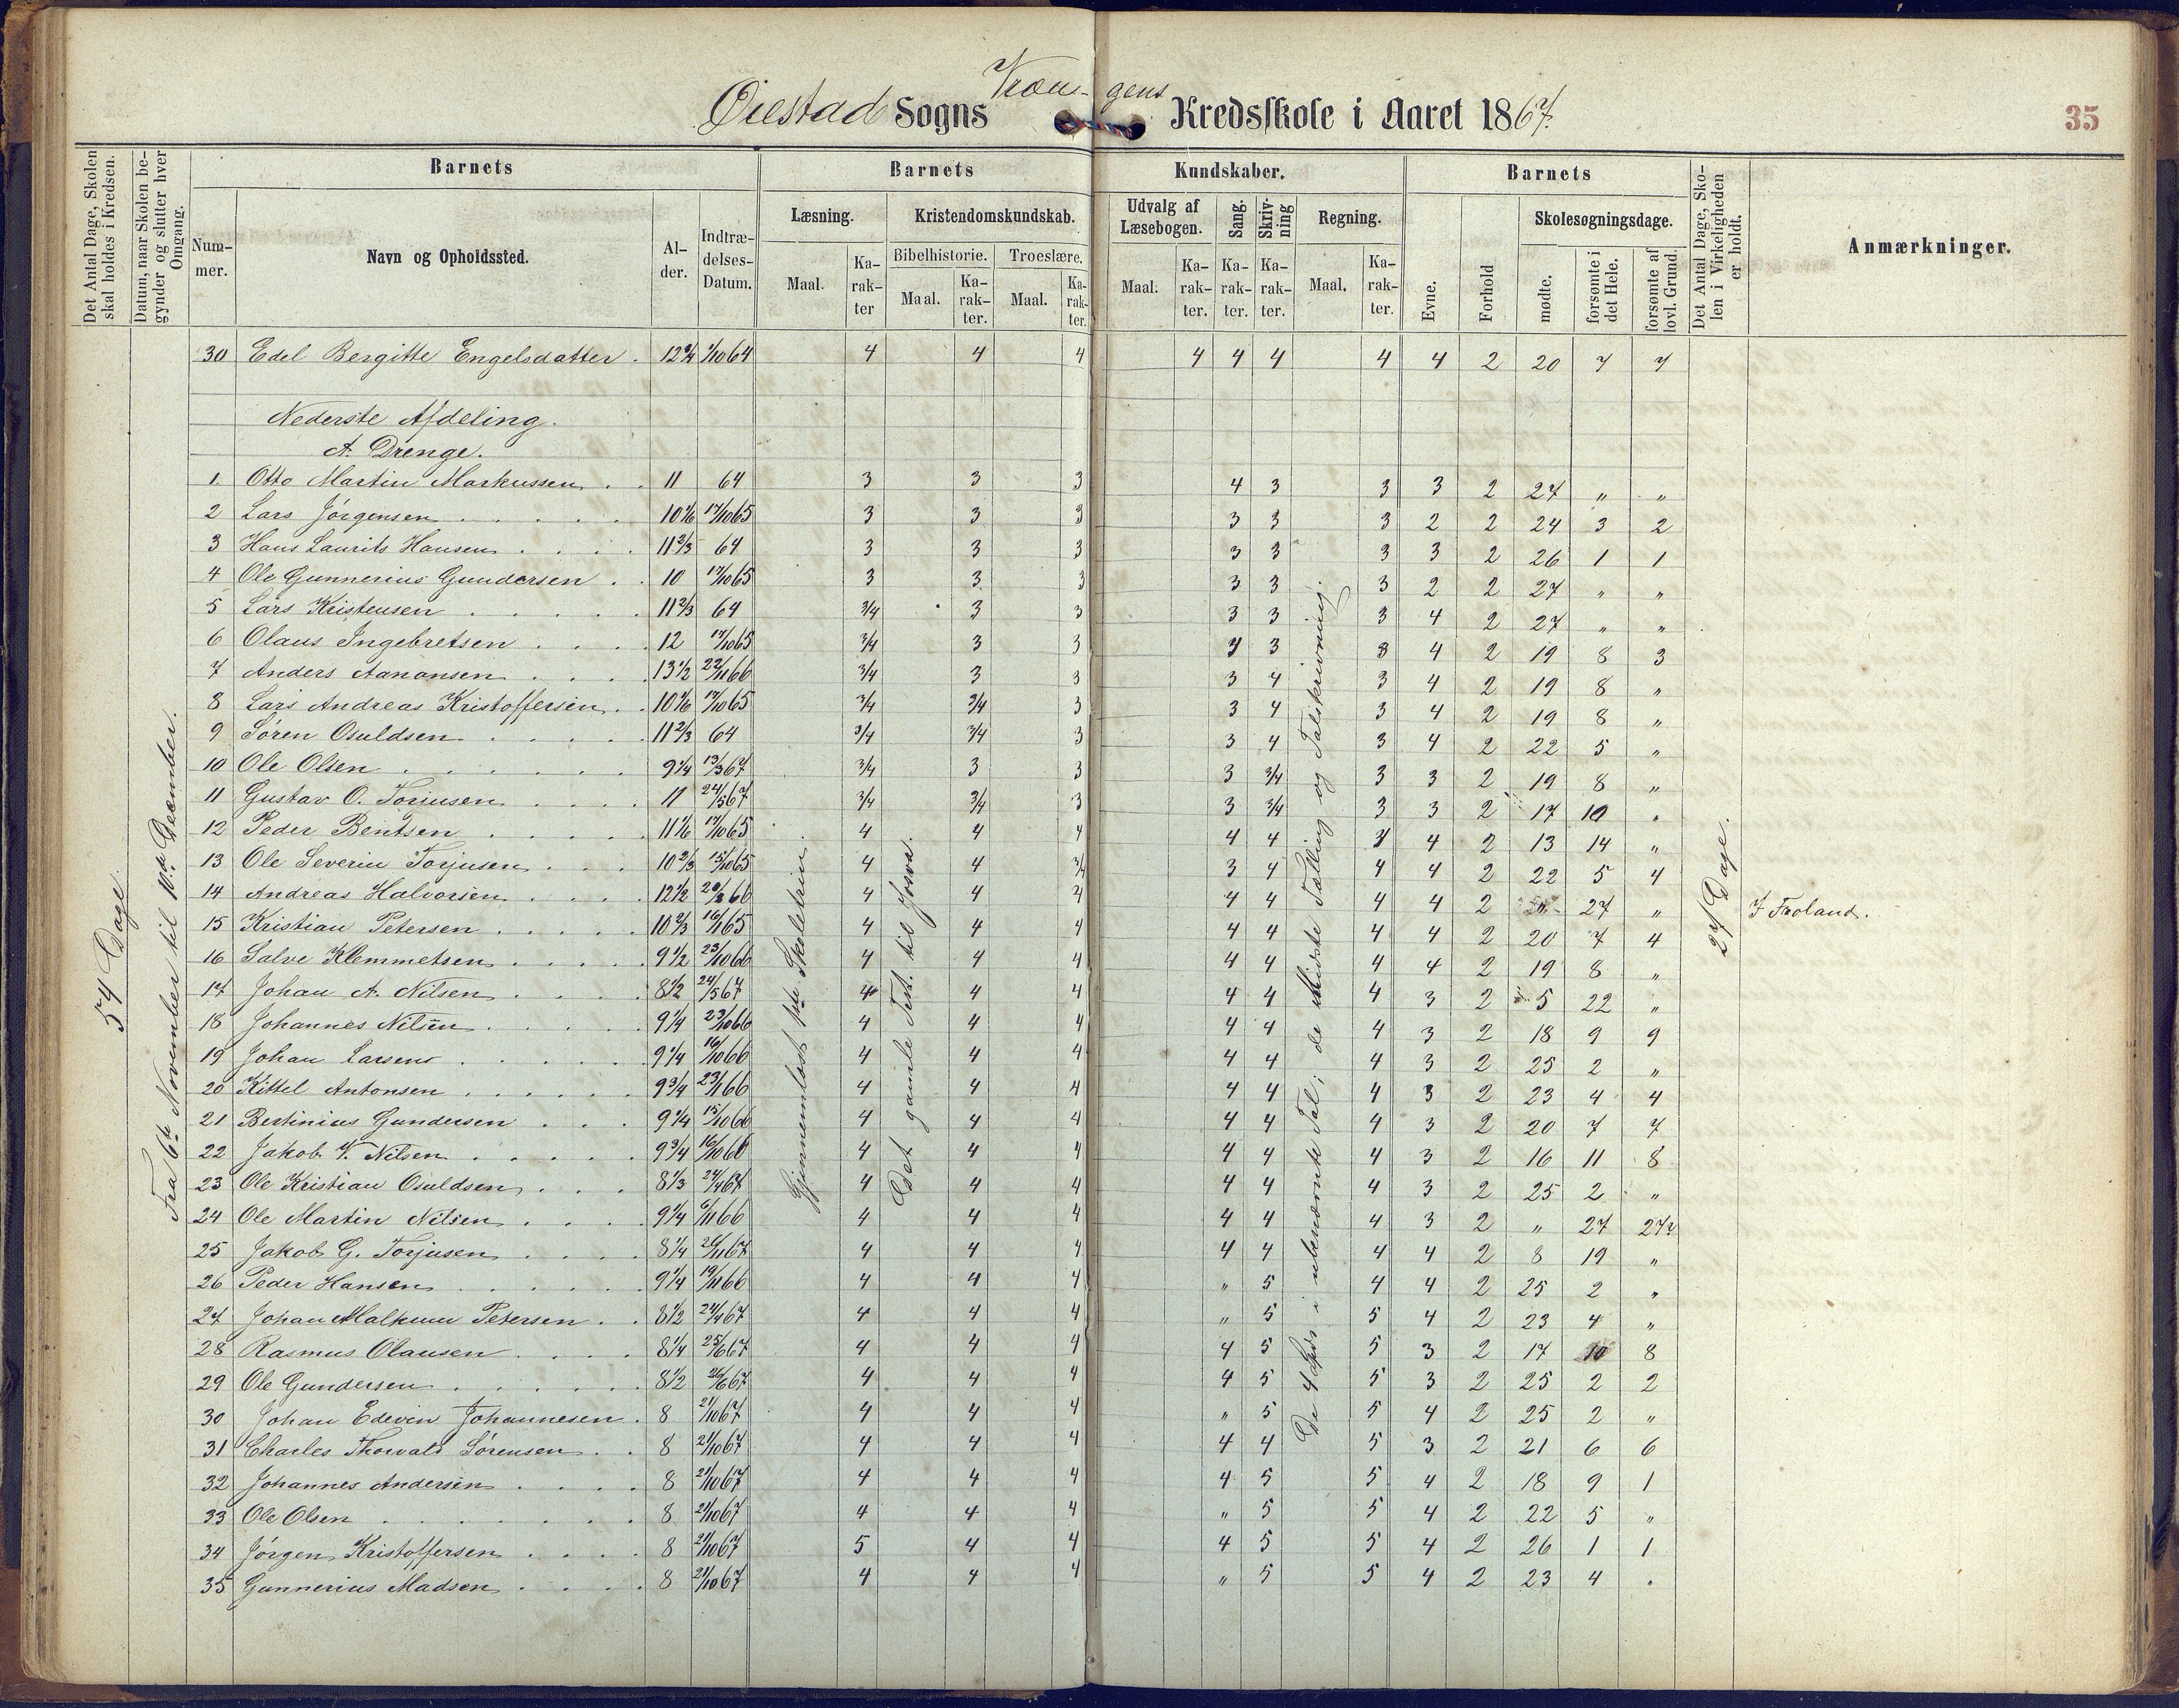 Øiestad Sogns Kræn-gens Kredsskole i Aaret 1867.
35
Det Antal Dage, Skolen skal holdes i Kredsen.
Datum, naar Skolen begynder og slutter hver Omgang.
Barnets
Barnets
Kundskaber.
Barnets
Det Antal Dage, Skolen i Virkeligheden er holdt.
Anmærkninger.
Nummer.
Navn og Opholdssted.
Alder.
Indtrædelses-Datum.
Læsning.
Kristendomskundskab.
Udvalg af Læsebogen.
Sang.
Skrivning
Regning.
Evne.
Forhold
Skolesøgningsdage.
Bibelhistorie.
Troeslære.
Maal.
Karakter
Maal.
Karakter.
Maal.
Karakter.
Maal.
Karakter.
Karakter.
Karakter.
Maal.
Karakter.
mødte.
forsømte i det Hele.
forsømte af lovl. Grund.
54 Dage.
Fra 6te November til 10de December.
Gjennemlæst 1ste Skoletrin
Det gamle Test. til Josva.
De 4 Spes. i ubenævnte Tal; de Midste Tælling og Talskrivning.
27 Dage.
30 Edel Bergitte Engelsdatter. 12 3/4 1/10 64 4 4 4 4 4 4 4 4 2 20 7 7
Nederste Afdeling.
A. Drenge.
1. Otto Martin Markussen 11 64 3 3 3 4 3 3 3 2 27 " "
2 Lars Jørgensen 10 1/6 17/10 65 3 3 3 3 3 3 2 2 24 3 2
3 Hans Laurits Hansen 11 2/3 64 3 3 3 3 3 3 3 2 26 1 1
4 Ole Gunnerius Gundersen 10 17/10 65 3 3 3 3 3 3 2 2 27 " "
5 Lars Kristensen 11 2/3 64 3/4 3 3 3 3 3 4 2 27 " "
6 Olaus Ingebretsen 12 17/10 65 3/4 3 3 3 3 4 2 19 8 3
7 Anders Aanonsen 13 1/2 22/11 66 3/4 3 3 3 4 3 4 2 19 8 "
8 Lars Andreas Kristoffersen 10 1/6 17/10 65 3/4 3/4 3 3 4 3 4 2 19 8 "
9 Søren Osuldsen 11 2/3 64 3/4 3/4 3 3 4 3 4 2 22 5 "
10 Ole Olsen 9 1/4 13/3 67 3/4 3 3 3 3/4 3 3 2 19 8 "
11 Gustav O. Torjusen 11 24/5 67 3/4 3/4 3 3 3/4 3 3 2 17 10 "
12 Peder Bentsen 11 1/6 17/10 65 4 4 4 4 4 4 2 13 14 "
13 Ole Severin Torjusen 10 2/3 15/10 65 4 4 3/4 3 4 4 4 2 22 5 4
14 Andreas Halvorsen 12 1/2 66 4 4 4 4 4 4 4 2 " 27 " I Froland.
15 Kristian Petersen 10 2/3 16/1 65 4 4 4 4 4 4 4 2 20 7 4
16 Salve Klemmetsen 9 1/2 23/10 66 4 4 4 4 4 4 4 2 19 8 "
17 Johan A. Nilsen 8 1/2 24/5 67 4 4 4 4 4 4 3 2 5 22 "
18 Johannes Nilsen 9 1/4 23/10 66 4 4 4 4 4 4 3 2 18 9 9
19 Johan Larsen 9 1/4 16/10 66 4 4 4 4 4 4 3 2 25 2 "
20 Kittel Antonsen 9 3/4 23/1 66 4 4 4 4 4 4 3 2 23 4 4
21 Bertinius Gundersen 9 1/4 15/10 66 4 4 4 4 4 4 3 2 20 7 7
22 Jakob V. Nilsen 9 3/4 16/10 66 4 4 4 4 4 4 3 2 16 11 8
23 Ole Kristian Osuldsen 8 1/3 24/4 67 4 4 4 4 4 4 3 2 25 2 "
24 Ole Martin Nilsen 9 1/4 6/11 66 4 4 4 4 4 4 3 2 " 27 27?
25 Jakob G. Torjusen 8 1/4 26/11 67 4 4 4 4 4 4 4 2 8 19 "
26 Peder Hansen 9 1/4 19/11 66 4 4 4 " 5 4 4 2 25 2 "
27 Johan Malkum Petersen 8 1/2 24/4 67 4 4 4 " 5 5 4 2 23 4 "
28 Rasmus Olausen 8 1/4 25/6 67 4 4 4 4 5 5 3 2 17 10 8
29 Ole Gundersen 8 1/2 26/6 67 4 4 4 4 5 5 3 2 25 2 2
30 Johan Edevin Johannesen 8 21/10 67 4 4 4 " 5 5 4 2 25 2 "
31 Charles Thorvald Sørensen 8 21/10 67 4 4 4 4 4 5 3 2 21 6 6
32 Johannes Andersen 8 21/10 67 4 4 4 4 5 5 4 2 18 9 1
33 Ole Olsen 8 21/10 67 4 4 4 " 5 5 4 2 22 5 "
34 Jørgen Kristoffersen 8 21/10 67 5 4 4 4 5 5 4 2 26 1 1
35 Gunnerius Madsen 8 21/10 67 4 4 4 " 5 5 4 2 23 4 "